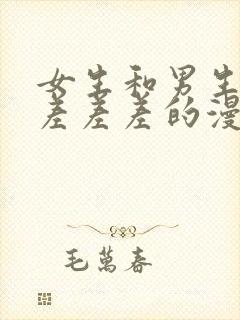 女生和男生
差差差的漫
毛萬春